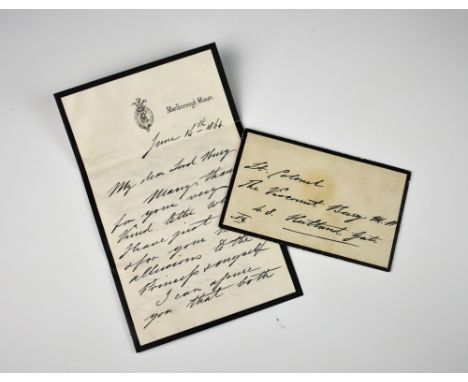 Marlborough House.
June 16th 1864
My dear Lord Bury
Many thanks
for your very
kind
I have just
for your
allusions to the
Princess & myself
I can assure
you that both
Lt. Colonel
The Viscount Bury M.P.
48. Rutland Gate